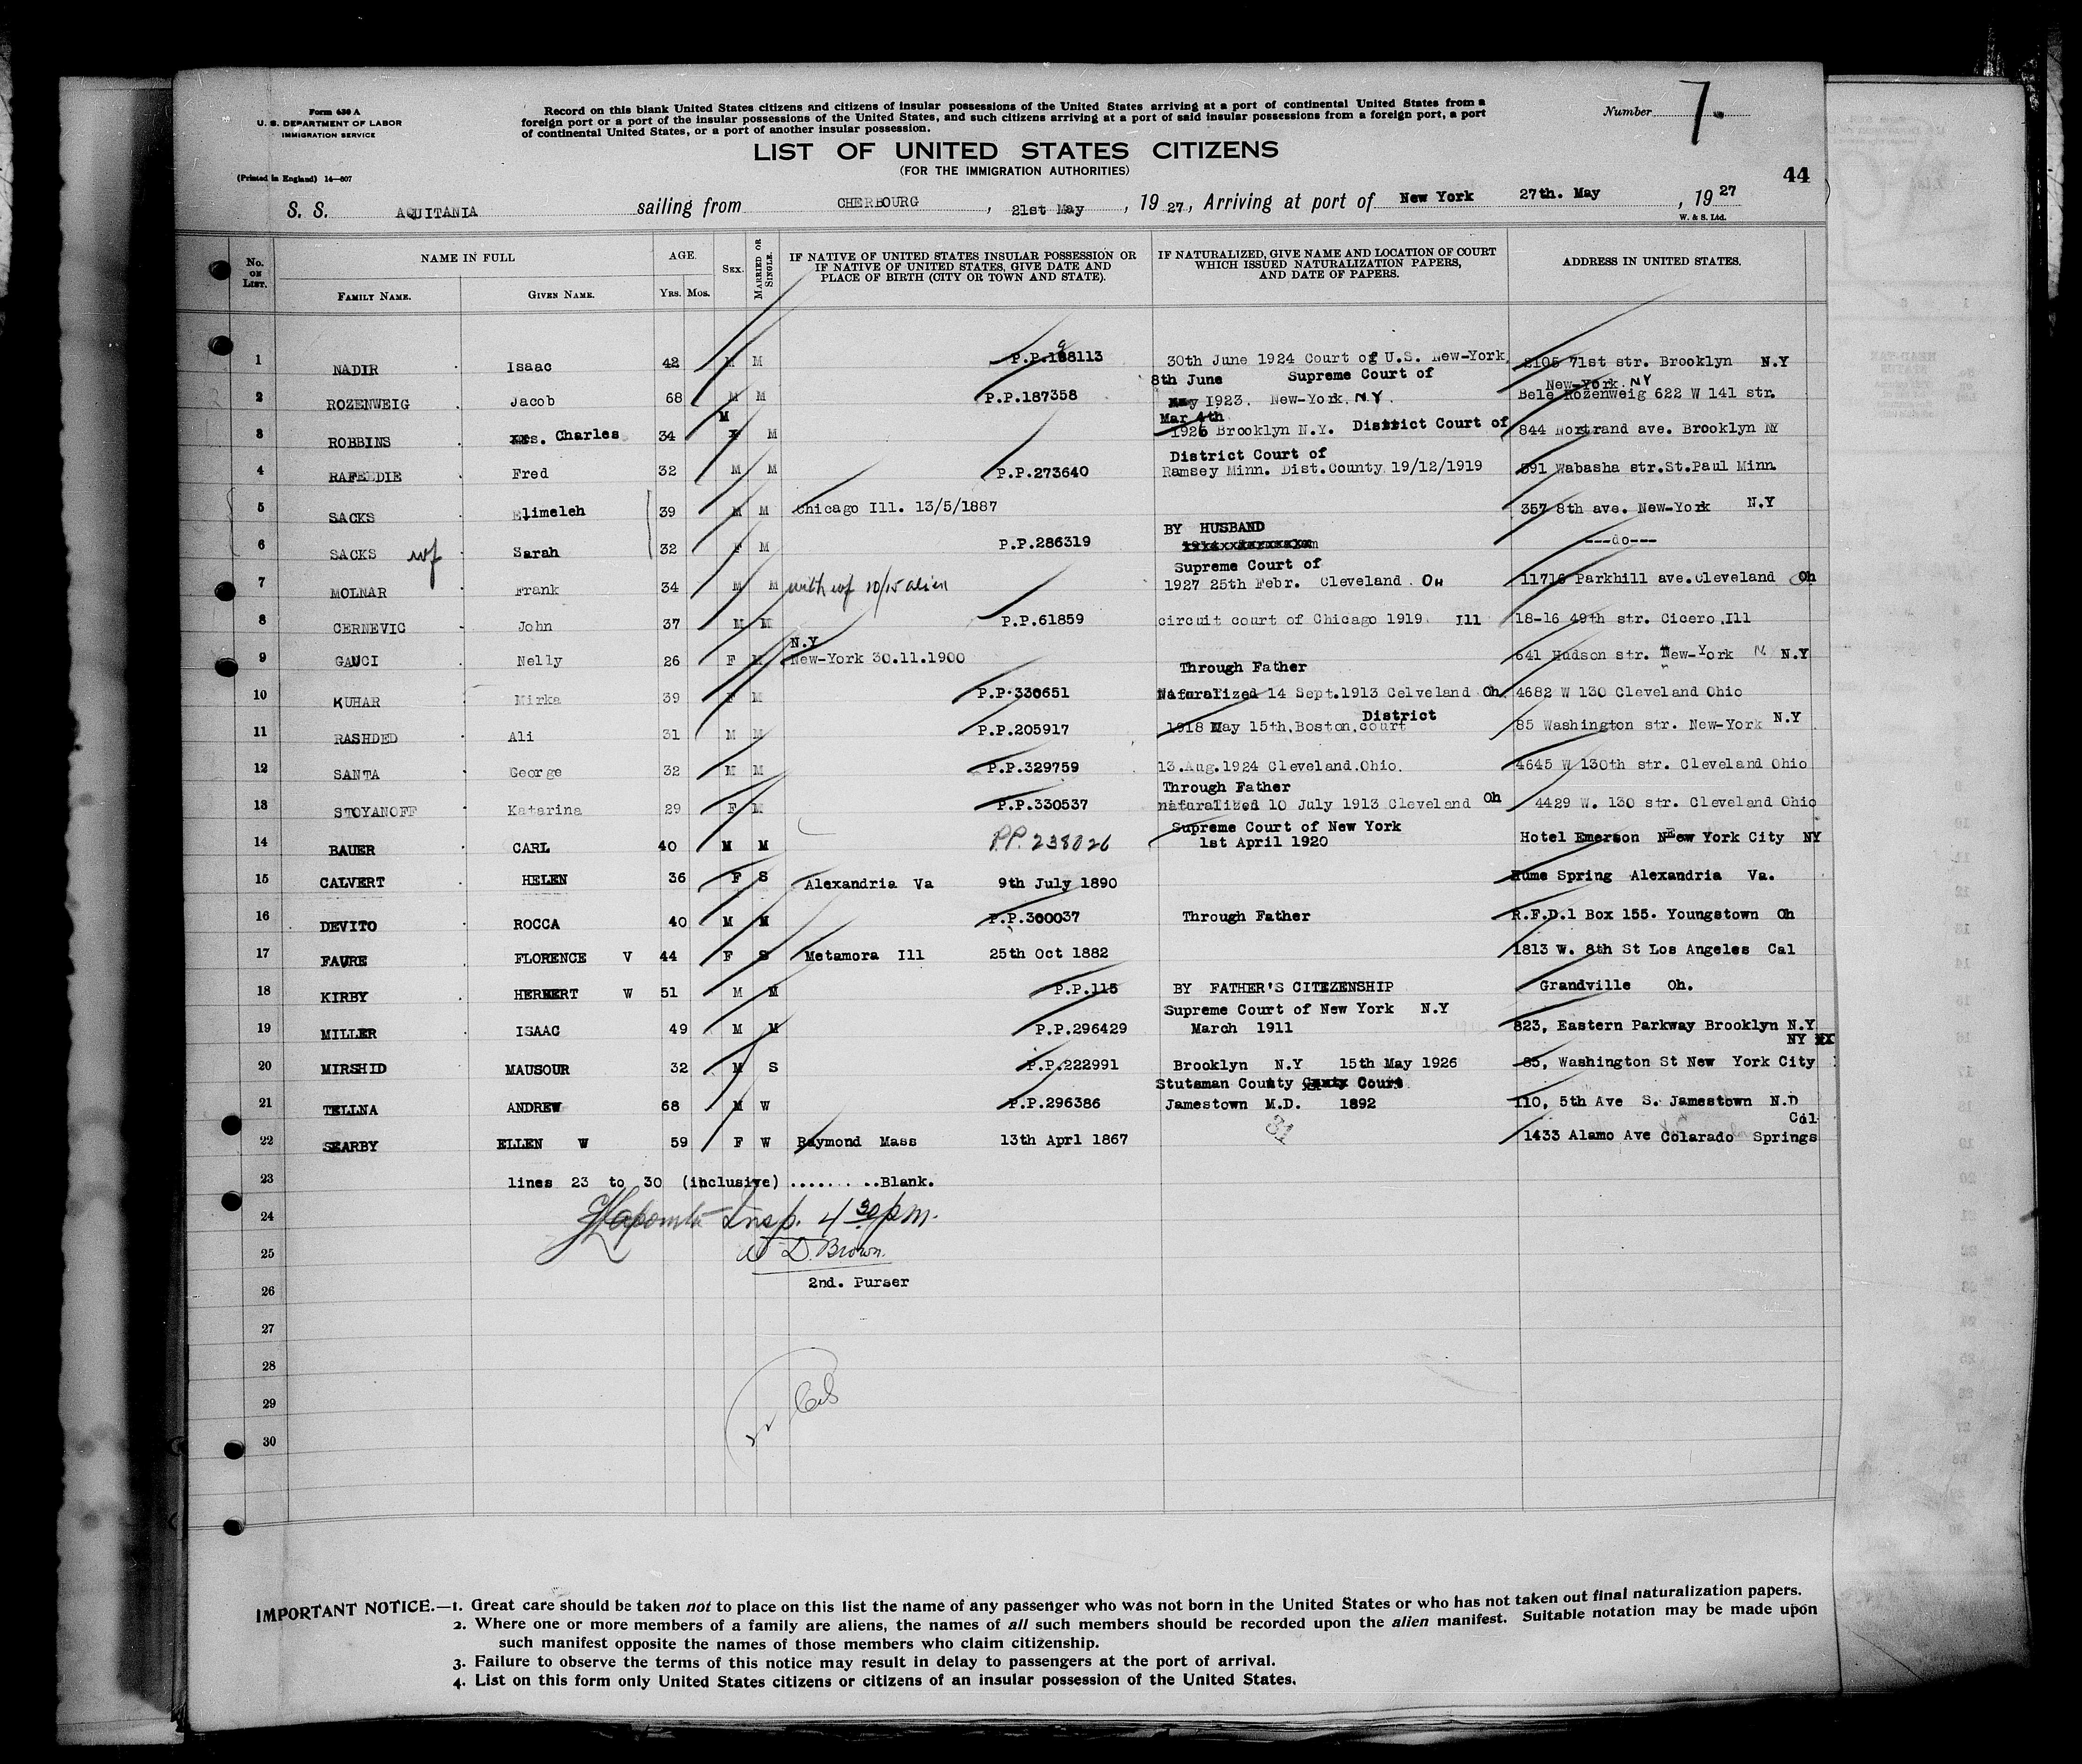 Form 630 A
U. S. DEPARTMENT OF LABOR
IMMIGRATION SERVICE
(Printed in England) 14—807
Record on this blank United States citizens and citizens of insular possessions of the United States arriving at a port of continental United States from a
foreign port or a port of the insular possessions of the United States, and such citizens arriving at a port of said insular possessions from a foreign port, a port
of continental United States, or a port of another insular possession.
Number 7.
LIST OF UNITED STATES CITIZENS
(FOR THE IMMIGRATION AUTHORITIES)
44
S. S. AQUITANIA sailing from CHERBOURG, 21st May, 19 27, Arriving at port of New York 27th. May, 19 27
W. & S. Ltd.
No. ON LIST. NAME IN FULL AGE. SEX. MARRIED OR SINGLE. IF NATIVE OF UNITED STATES INSULAR POSSESSION OR IF NATIVE OF UNITED STATES, GIVE DATE AND PLACE OF BIRTH (CITY OR TOWN AND STATE). IF NATURALIZED, GIVE NAME AND LOCATION OF COURT WHICH ISSUED NATURALIZATION PAPERS, AND DATE OF PAPERS. ADDRESS IN UNITED STATES.
FAMILY NAME. GIVEN NAME. YRS. MOS.
1 NADIR Isaac 42 M M P.P.188113 30th June 1924 Court of U.S. New-York 2105 71st str. Brooklyn N.Y
8th June Supreme Court of New-York NY
2 ROZENWEIG Jacob 68 M M P.P.187358 May 1923. New-York N.Y. Bele Rozenweig 622 W 141 str.
M Mar 4th
3 ROBBINS Mrs. Charles 34 M 1926 Brooklyn N.Y. District Court of 844 Nostrand ave. Brooklyn NY
District Court of
4 RAFELDIE Fred 32 M M P.P.273640 Ramsey Minn. Dist.County 19/12/1919 591 Wabasha str.St.Paul Minn.
5 SACKS Elimeleh 39 M M Chicago Ill. 13/5/1887 357 8th ave. New-York N.Y
BY HUSBAND
6 SACKS wf Sarah 32 F M P.P.286319 ---do---
Supreme Court of
7 MOLNAR Frank 34 M M with wf 10/15 alien 1927 25th Febr. Cleveland OH 11716 Parkhill ave.Cleveland Oh
8 CERNEVIC John 37 M M P.P.61859 circuit court of Chicago 1919 Ill 18-16 49th str. Cicero Ill
N.Y
9 GAUCI Nelly 26 F M New-York 30.11.1900 641 Hudson str. New-York N.Y
Through Father
10 KUHAR Mirka 39 F M P.P.330651 Naturalized 14 Sept.1913 Celveland Oh 4682 W 130 Cleveland Ohio
District
11 RASHDED Ali 31 M M P.P.205917 1918 May 15th, Boston, court 85 Washington str. New-York N.Y
12 SANTA George 32 M M P.P.329759 13.Aug.1924 Cleveland.Ohio. 4645 W 130th str. Cleveland Ohio
Through Father
13 STOYANOFF Katarina 29 F M P.P.330537 naturalized 10 July 1913 Cleveland Oh 4429 W. 130 str. Cleveland Ohio
Supreme Court of New York
14 BAUER CARL 40 M M P.P. 238026 1st April 1920 Hotel Emerson New York City NY
15 CALVERT HELEN 36 F S Alexandria Va 9th July 1890 Hume Spring Alexandria Va.
16 DEVITO ROCCA 40 M M P.P.300037 Through Father R.F.D.1 Box 155. Youngstown Oh
17 FAURE FLORENCE V 44 F S Metamora Ill 25th Oct 1882 1813 W. 8th St Los Angeles Cal
18 KIRBY HERBERT W 51 M M P.P.115 BY FATHER'S CITEZENSHIP Grandville Oh.
Supreme Court of New York N.Y
19 MILLER ISAAC 49 M M P.P.296429 March 1911 823, Eastern Parkway Brooklyn N.Y
NY
20 MIRSHID MAUSOUR 32 M S P.P.222991 Brooklyn N.Y 15th May 1926 85, Washington St New York City
Stutsman County Court
21 TELLNA ANDREW 68 M W P.P.296386 Jamestown M.D. 1892 110, 5th Ave S. Jamestown N.D
31 Col
22 SEARBY ELLEN W 59 F W Raymond Mass 13th Aprl 1867 1433 Alamo Ave Colarado Springs
23 lines 23 to 30 (inclusive) .........Blank.
24 Insp. 4 30 pm.
25 W D. Brown.
2nd. Purser
26
27
28
29
30
IMPORTANT NOTICE.—1. Great care should be taken not to place on this list the name of any passenger who was not born in the United States or who has not taken out final naturalization papers.
2. Where one or more members of a family are aliens, the names of all such members should be recorded upon the alien manifest. Suitable notation may be made upon
such manifest opposite the names of those members who claim citizenship.
3. Failure to observe the terms of this notice may result in delay to passengers at the port of arrival.
4. List on this form only United States citizens or citizens of an insular possession of the United States.